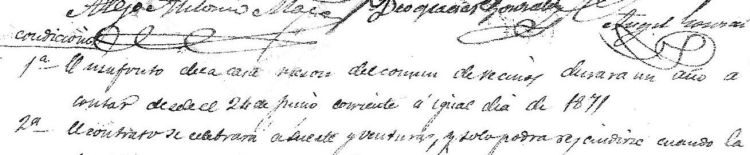 Deogracias Gonzalez
condiciones
1ª El usufruto de la casa meson del comun de vecinos durara un año a
contar desde el 24 de Junio corriente á igual dia de 1871
2ª El contrato se celebrara a suerte y ventura, y solo podra rejindirse cuando la